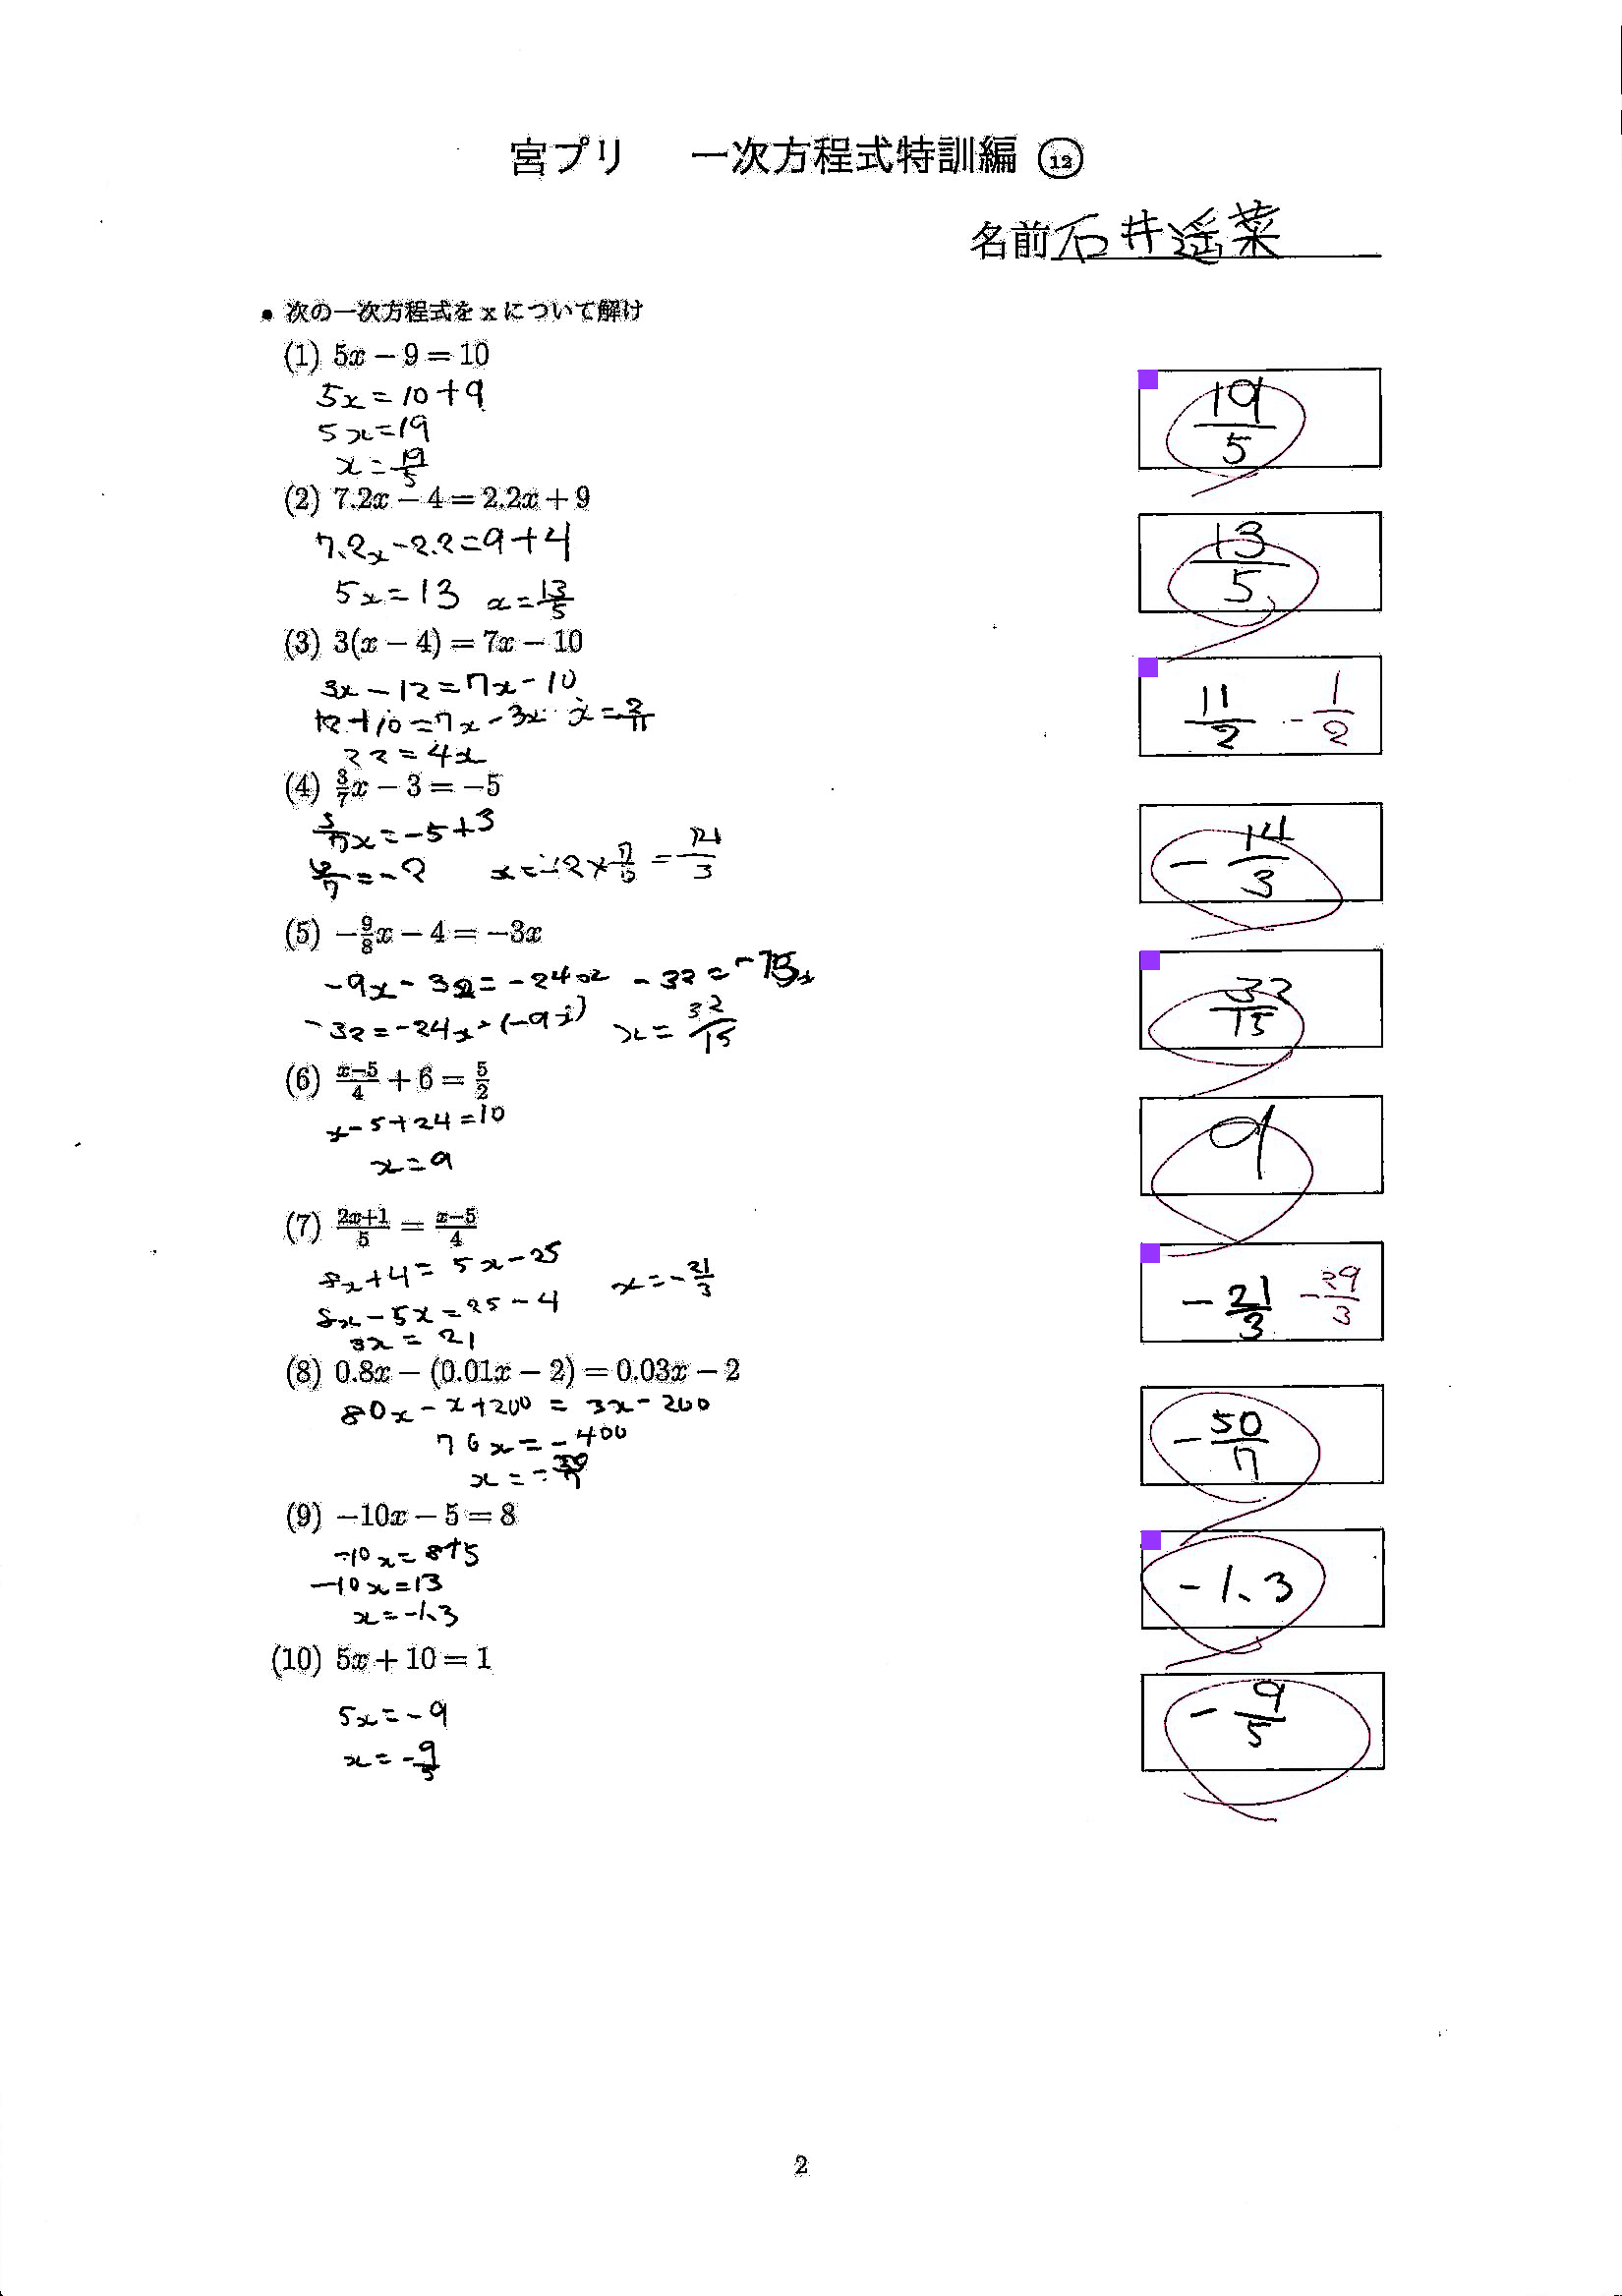 宮プリ 一次方程式特訓編 ⑫
名前 石井遥菜
• 次の一次方程式をxについて解け
(1) 5x − 9 = 10
5x = 10 + 9
5x = 19
x = 19/5
19/5
(2) 7.2x − 4 = 2.2x + 9
7.2x − 2.2 = 9 + 4
5x = 13 x = 13/5
13/5
(3) 3(x − 4) = 7x − 10
3x − 12 = 7x − 10
12 + 10 = 7x − 3x x = 2/11
22 = 4x
11/2 − 1/2
(4) 3/7x − 3 = −5
3/7x = −5 + 3
− 14/3
(5) −9/8x − 4 = −3x
−9x − 32 = −24x − 32 = −15x
−32 = −24x − (−9x) x = 32/15
32/15
(6) x−5/4 + 6 = 5/2
x − 5 + 24 = 10
x = 9
9
(7) 2x+1/5 = x−5/4
8x + 4 = 5x − 25 x = −21/3
8x − 5x = 25 − 4
3x = 21
− 21/3 − 29/3
(8) 0.8x − (0.01x − 2) = 0.03x − 2
80x − x + 200 = 3x − 200
76x = −400
− 50/7
(9) −10x − 5 = 8
−10x = 8+5
−10x = 13
x = −1.3
−1.3
(10) 5x + 10 = 1
5x = −9
x = −9/5
− 9/5
2